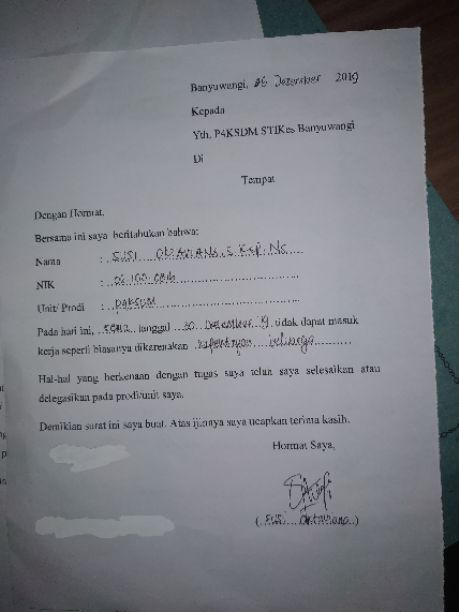 Banyuwangi, 26 Desember 2019
Kepada
Yth. P4KSDM STIKes Banyuwangi
Di
Tempat
Dengan Hormat,
Bersama ini saya beritahukan bahwa:
Nama : SUSI S.Kep.Ns
NIK : 06.
Unit/ Prodi :
Pada hari ini, tanggal 30 Desember 19 tidak dapat masuk
kerja seperti biasanya dikarenakan kepentingan keluarga
Hal-hal yang berkenaan dengan tugas saya telah saya selesaikan atau
delegasikan pada prodi/unit saya.
Demikian surat ini saya buat. Atas ijinnya saya ucapkan terima kasih.
Hormat Saya,
( Susi )